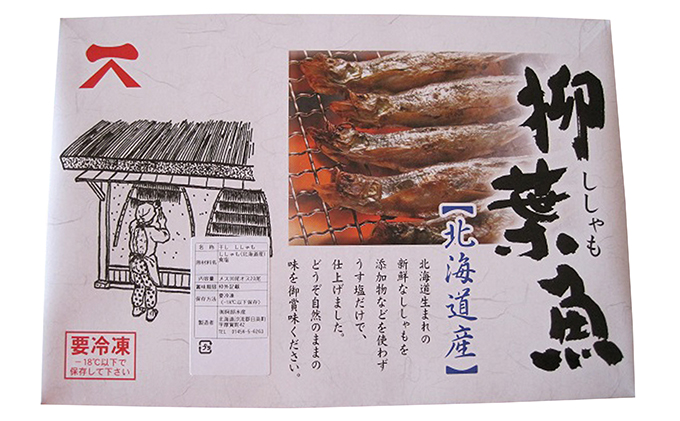 柳葉魚
ししゃも
【北海道産】
北海道生まれの
新鮮なししゃもを
添加物などを使わず
うす塩だけで、
仕上げました。
どうぞ自然のままの
味を御賞味ください。
名称 干し ししゃも
原材料名 ししゃも(北海道産)
食塩
賞味期限 枠外記載
保存方法 要冷凍
(-18℃以下保存)
製造者
北海道沙流郡日高町
TEL 01456-5-6263
プラ
要冷凍
−18℃以下で
保存して下さい